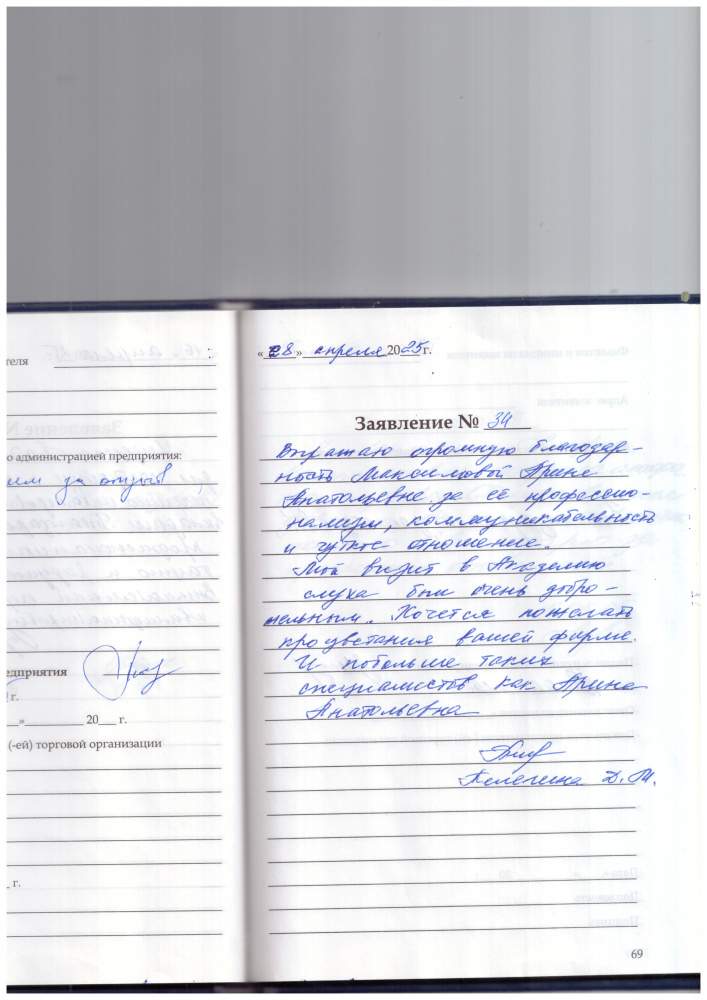 теля
о администрацией предприятия:
ем за отзыв
едприятия
г.
» 20 г.
(-ей) торговой организации
г.
«28» апреля 2025 г.
Заявление № 34
Выражаю огромную благодар-
ность Максимовой Арине
Анатольевне за её профессио-
нализм, коммуникательность
и чуткое отношение.
Мой визит в Академию
слуха был очень добро-
тельным. Хочется пожелать
процветания вашей фирме.
И побольше таких
специалистов как Арина
Анатольевна
Телегина Д. М.
69